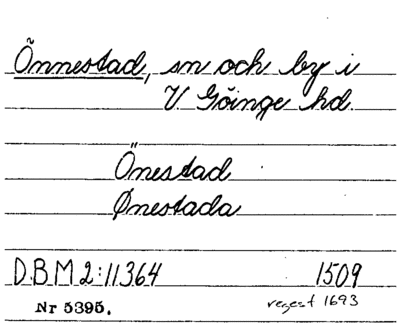 Önnestad, sn och by i
V Göinge hd.
Önestad
Ønestada
D.B.M 2:11364 1509
Nr 5395. regest 1693